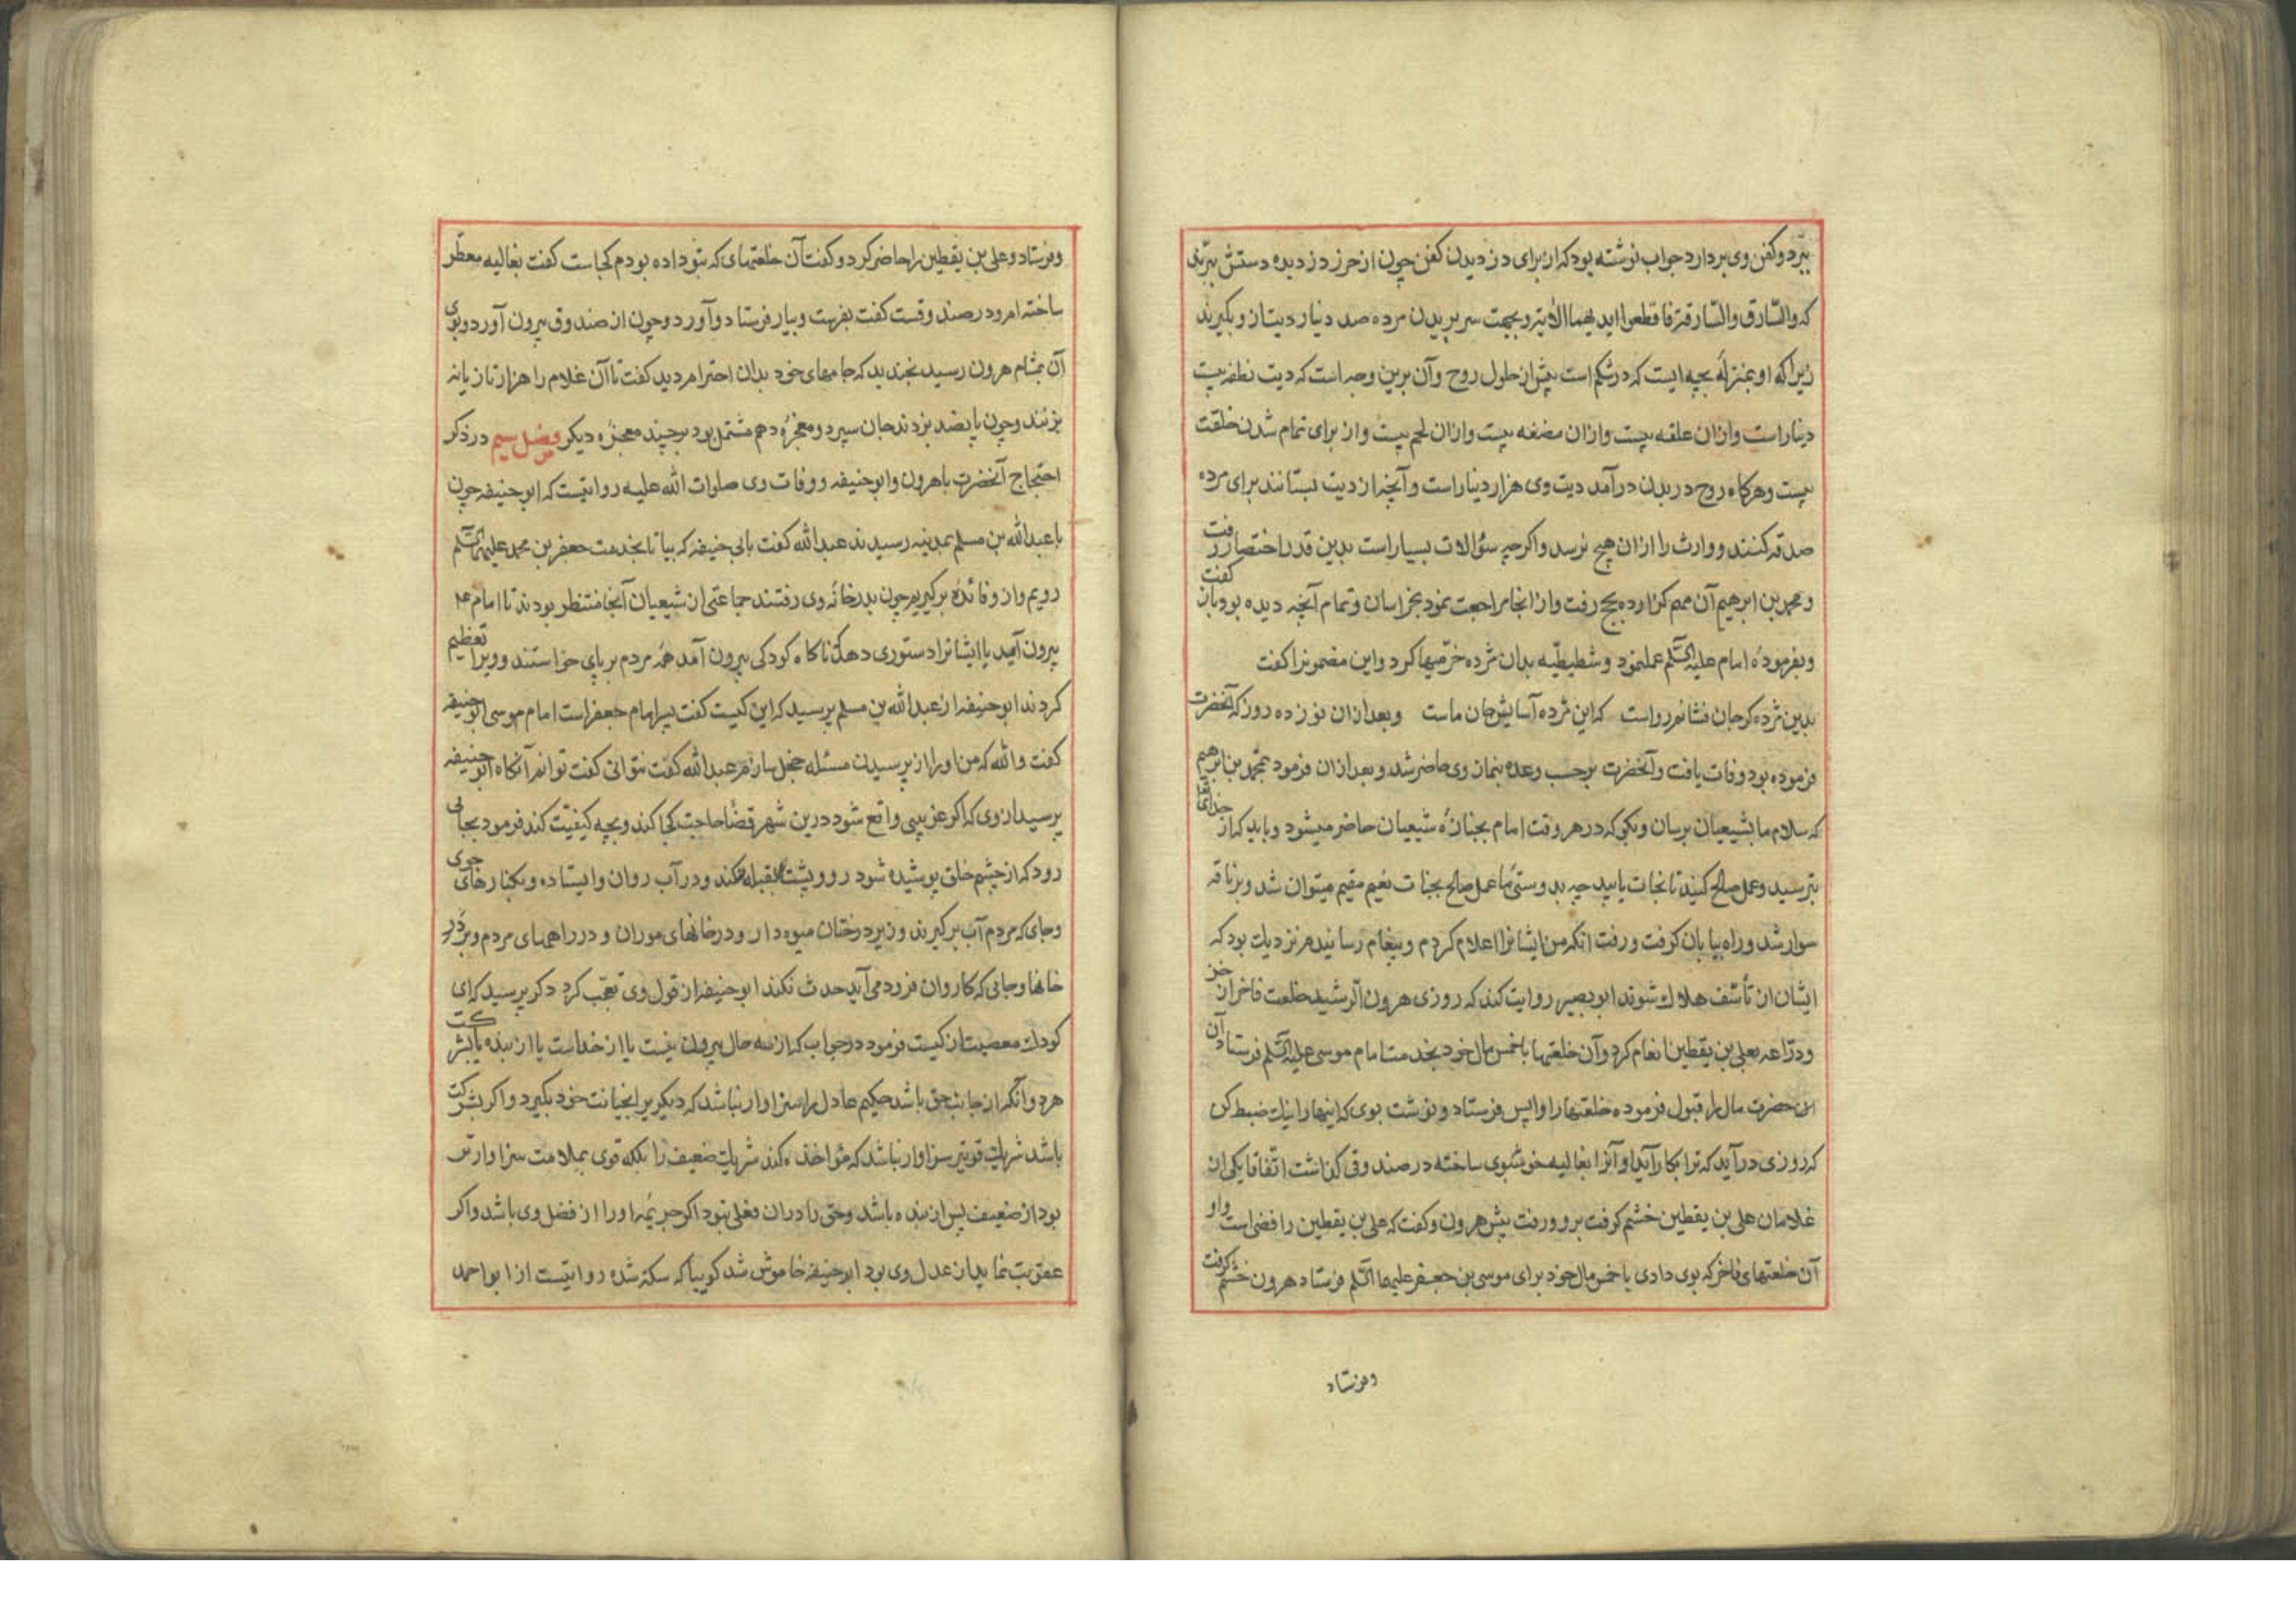 ببرد و کفن وی بردارد جواب نوشته بود که از برای دزدیدن کفن چون از حرز دزدیده دستش ببرند
که والسّارق والسّارقة فاقطعوا ایدیهما الایة و بجهت سر بریدن مرده صد دینار دیت ازو بگیرند
زیرا که او بمنزلهٔ بچه ایست که در شکم است پیش از حلول روح و آن برین وجه است که دیت نطفه بیست
دینار است وازان علقه بیست وازان مضغه بیست وازان لحم بیست واز برای تمام شدن خلقت
بیست وهرگاه روح در بدن درآمد دیت وی هزار دینار است و آنچه از دیت بستانند برای مرده
صدقه کنند و وارث را ازان هیچ نرسد واکرچه سؤالات بسیار است بدین قدر اختصار رفت
و محمد بن ابرهیم آن مهم کزارده بحج رفت واز انجا مراجعت نمود بخراسان و تمام آنچه دیده بود باز کفت
و بفرمودهٔ امام علیه السّلم عملنمود و شطیطیّه بدان مژده خرّمیها کرد واین مضمونرا کفت
بدین مژده کر جان فشانم رواست که این مژده آسایش جان ماست وبعد ازان نوزده روز که آنحضرت
فرموده بود وفات یافت وآنحضرت برحسب وعده بنماز وی حاضر شد و بعد ازان فرمود بمحمد بن ابرهیم
که سلام ما بشیعیان برسان وبکو که در هر وقت امام بجنازهٔ شیعیان حاضر میشود و باید که از خدای تعا
بترسید وعمل صالح کنید تا نجات یابید چه بدوستی ما وعمل صالح بجنات نعیم مقیم میتوان شد وبر ناقه
سوار شد و راه بیابان کرفت و رفت انکه من ایشانرا اعلام کردم و پیغام رسانیدم نزدیک بود که
ایشان از تأسّف هلاک شوند ابو بصیر روایت کند که روزی هرون الرشید خلعت فاخر از خز
ودرّاعه بعلی بن یقطین انعام کرد وآن خلعتها با خمس مال خود بخدمت امام موسی علیه السّلم فرستاد آن
حضرت مال را قبول فرموده خلعتها را واپس فرستاد و نوشت بوی که اینها را نیک ضبط کن
که روزی درآید که ترا بکار آید او آنرا بغالیه خوشبوی ساخته در صندوقی کذاشت اتّفاقا یکی از
غلامان علی بن یقطین خشم کرفت برو و رفت پیش هرون وکفت که علی بن یقطین رافضی است واو
آن خلعتهای فاخر که بوی دادی با خمس مال خود برای موسی بن جعفر علیهما السّلم فرستاد هرون خشم کرفت
وفرستاد
وفرستاد وعلی بن یقطین را حاضر کرد و کفت آن خلعتهای که بتو داده بودم کجاست کفت بغالیه معطّر
ساخته ام ودر صندوقست کفت بفرست وبیار فرستاد وآورد وچون از صندوق بیرون آورد وبوی
آن بمشام هرون رسید بخندید که جامهای خود بدان احترام دید کفت تا آن غلام را هزار تازیانه
بزنند وچون پانصد بزدند جان سپرد و معجزهٔ دهم مشتمل بود بر چند معجزه دیکر فصل سیم در ذکر
احتجاج آنحضرت با هرون وابو حنیفه و وفات وی صلوات الله علیه روایتست که ابو حنیفه چون
با عبدالله بن مسلم بمدینه رسیدند عبدالله کفت بابی حنیفه که بیا تا بخدمت جعفر بن محمد علیهما السّلم
رویم واز و فائدهٔ برکیریم چون بدر خانهٔ وی رفتند جماعتی از شیعیان آنجا منتظر بودند تا امام ع
بیرون آمد یا ایشانرا دستوری دهد ناکاه کودکی بیرون آمد همه مردم بر پای خواستند و ویرا تعظیم
کردند ابو حنیفه از عبدالله بن مسلم پرسید که این کیست کفت پسر امام جعفر است امام موسی ابو حنیفه
کفت والله که من اورا از پرسیدن مسئله خجل سازم عبدالله کفت نتوانی کفت توانم آنکاه ابو حنیفه
پرسید از وی که اکر غریبی واقع شود درین شهر قضا حاجت کجا کند وبچه کیفیّت کند فرمود بجائی
رود که از چشم خلق پوشیده شود و رو و پشت بقبله نکند ودر آب روان وایستاده و بکنارهای جوی
وجای که مردم آب برکیرند وزیر درختان میوه دار ودر خانهای موران و در راههای مردم وبر در
خانها وجائی که کاروان فرود می آید حدث نکند ابو حنیفه از قول وی تعجّب کرد دکر پرسید که ای
کودک معصیت از کیست فرمود در جواب که از سه حال بیرون نیست یا از خداست یا از بنده یا بشرکت
هر دو آنکه از جانب حق باشد حکیم عادل را سزاوار نباشد که دیکریرا بخیانت خود بکیرد واکر بشرکت
باشد شریک قویتر سزاوار نباشد که مؤاخذه کند شریک ضعیف را بلکه قوی بملامت سزاوارتر
بود از ضعیف پس از بنده باشد وحق را دران فعلی نبود اکر جریمهٔ اورا از فضل وی باشد واکر
عقوبت نماید از عدل وی بود ابو حنیفه خاموش شد کوییا که سکته شده روایتست از ابو احمد